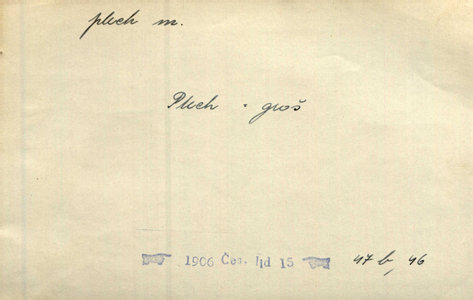 plech m.
Plech = groš
1906 Čes. lid 15 47 b, 46